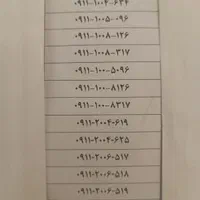 ۰۹۱۱-۱۰۰۴-۶۳۴
۰۹۱۱-۱۰۰۵-۰۹۶
۰۹۱۱-۱۰۰۸-۱۲۶
۰۹۱۱-۱۰۰۸-۳۱۷
۰۹۱۱-۱۰۰-۵۰۹۶
۰۹۱۱-۱۰۰-۸۱۲۶
۰۹۱۱-۱۰۰-۸۳۱۷
۰۹۱۱-۲۰۰۴-۶۱۹
۰۹۱۱-۲۰۰۴-۶۲۵
۰۹۱۱-۲۰۰۶-۵۱۷
۰۹۱۱-۲۰۰۶-۵۱۸
۰۹۱۱-۲۰۰۶-۵۱۹